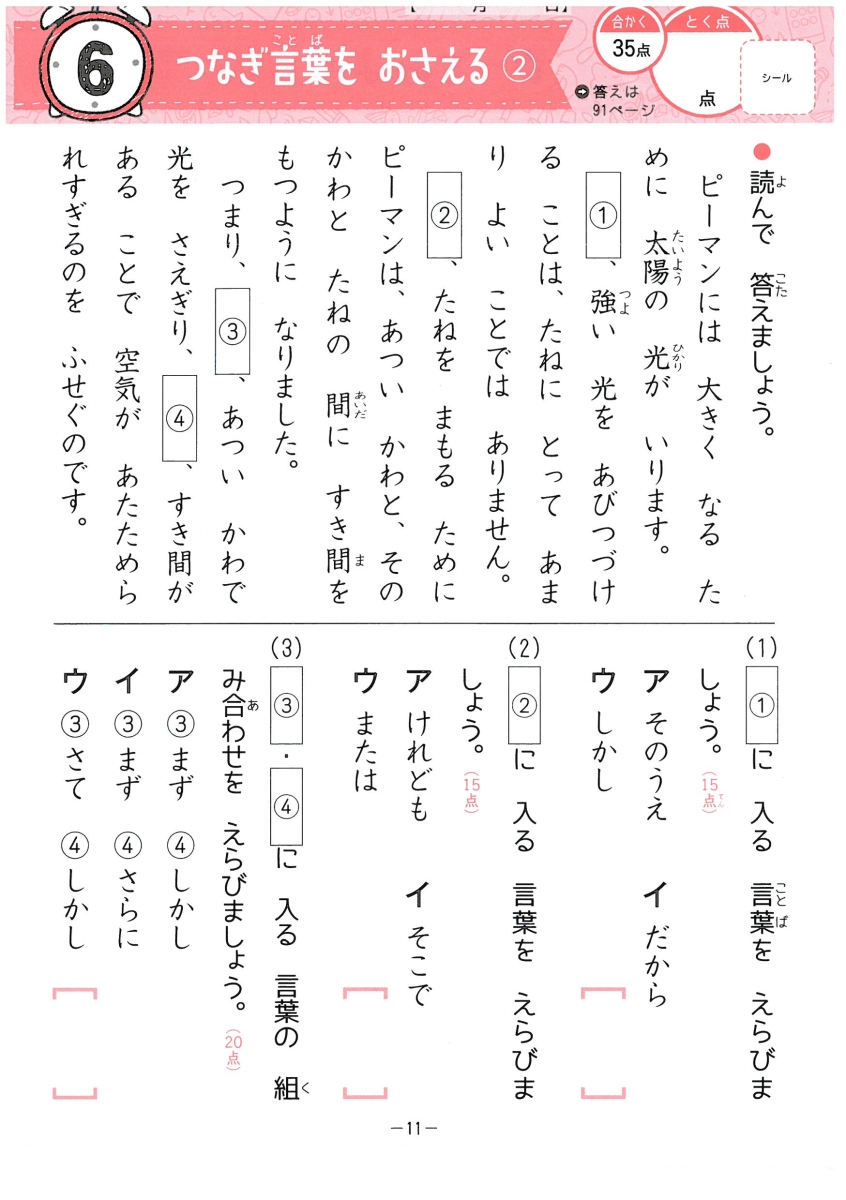 【　月　日】
6
つなぎ言葉を おさえる ②
合かく
35点
とく点
点
シール
➡答えは
91ページ
● 読んで 答えましょう。
ピーマンには 大きく なる た
めに 太陽の 光が いります。
①、強い 光を あびつづけ
る ことは、たねに とって あま
り よい ことでは ありません。
②、たねを まもる ために
ピーマンは、あつい かわと、その
かわと たねの 間に すき間を
もつように なりました。
つまり、③、あつい かわで
光を さえぎり、④、すき間が
ある ことで 空気が あたためら
れすぎるのを ふせぐのです。
(1) ①に 入る 言葉を えらびま
しょう。(15点)
ア そのうえ イ だから
ウ しかし
(2) ②に 入る 言葉を えらびま
しょう。(15点)
ア けれども イ そこで
ウ または
(3) ③・④に 入る 言葉の 組
み合わせを えらびましょう。(20点)
ア ③まず ④しかし
イ ③まず ④さらに
ウ ③さて ④しかし
—11—